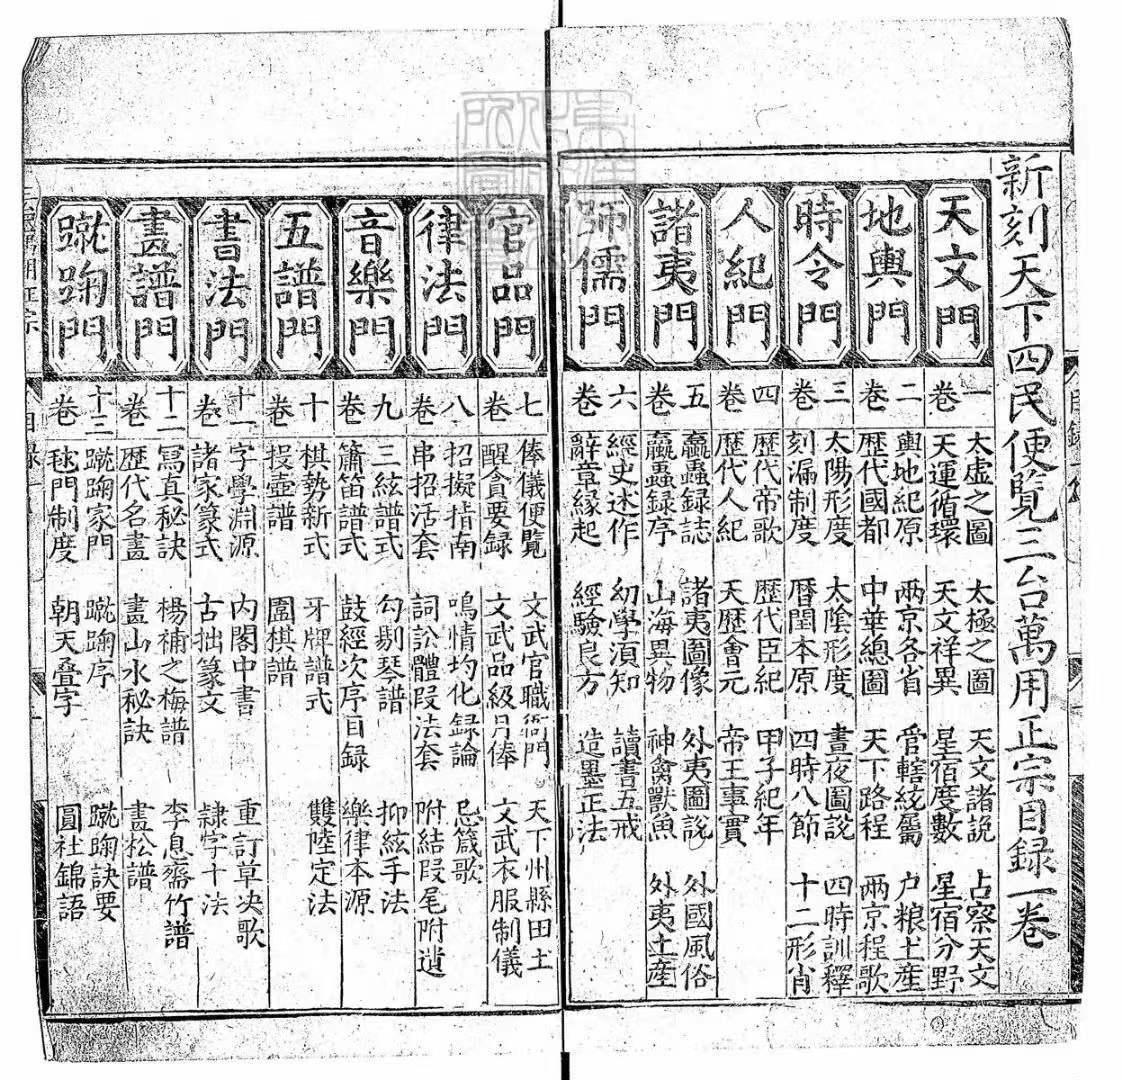 新刻天下四民便覽三台萬用正宗目錄一卷
天文門
一卷
太虛之圖 太極之圖 天文諸說 占察天文
天運循環 天文祥異 星宿度數 星宿分野
地輿門
二卷
輿地紀原 兩京各省 官轄統屬 户粮土產
歷代國都 中華總圖 天下路程 兩京程歌
時令門
三卷
太陽形度 太陰形度 晝夜圖說 四時訓釋
刻漏制度 曆閏本原 四時八節 十二形肖
人紀門
四卷
歷代帝歌 歷代臣紀 甲子紀年
歷代人紀 天歷會元 帝王事實
諸夷門
五卷
蠃蟲錄誌 諸夷圖像 外夷圖說 外國風俗
蠃蟲錄序 山海異物 神禽獸魚 外夷土產
師儒門
六卷
經史述作 幼學須知 讀書五戒
辭章緣起 經驗良方 造墨正法
官品門
七卷
俸儀便覽 文武官職衙門 天下州縣田土
醒貪要録 文武品級月俸 文武衣服制儀
律法門
八卷
招擬指南 鳴情均化録論 忌箴歌
串招活套 詞訟體段法套 附結段尾附遺
音樂門
九卷
三絃譜式 勾剔琴譜 抑絃手法
簫笛譜式 鼓經次序目録 樂律本源
五譜門
十卷
棋勢新式 牙牌譜式 雙陸定法
投壺譜 圍棋譜
書法門
十一卷
字學淵源 內閣中書 重訂草决歌
諸家篆式 古拙篆文 隸字十法
畫譜門
十二卷
寫真秘訣 楊補之梅譜 李息齋竹譜
歷代名畫 畫山水秘訣 畫松譜
蹴踘門
十三卷
蹴踘家門 蹴踘序 蹴踘訣要
毬門制度 朝天疊字 圓社錦語